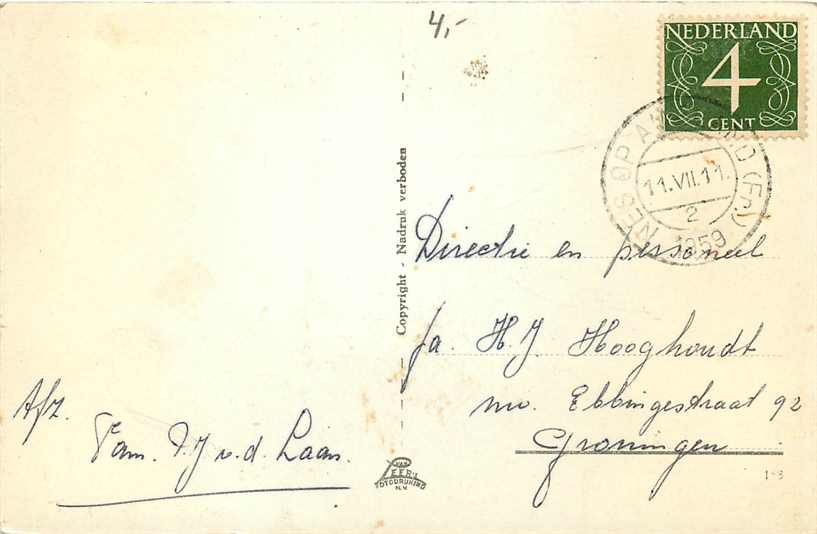 4,-
NEDERLAND
4
CENT
NES OP AMELAND (Fr.)
11.VII.11.
2
1959
Directie en personeel
fa. H.J. Hooghoudt
nw. Ebbingestraat 92
Groningen
Afz.
Fam. D.J v.d. Laan.
Copyright - Nadruk verboden
VAN
LEER'S
FOTODRUKIND
N.V.
1-3